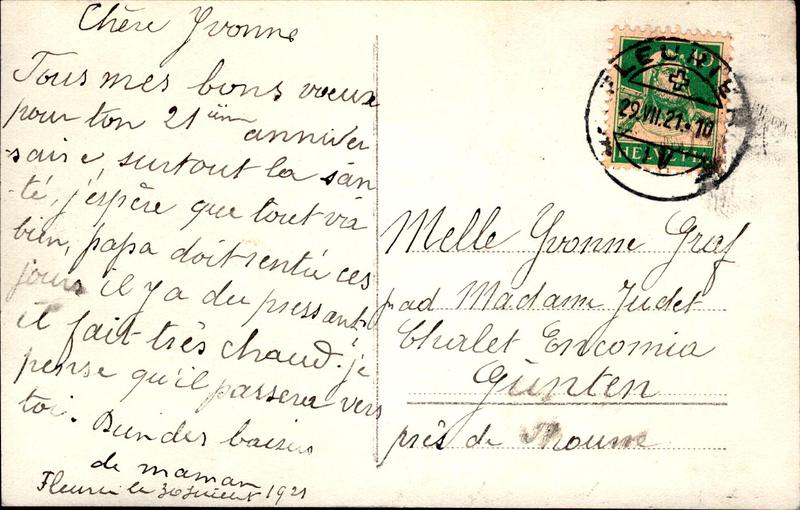 Chère Yvonne
Tous mes bons voeux
pour ton 21 ième anniver
saire, surtout la san
té, j'espère que tout va
bien, papa doit rentré ces
jours il y a du pressant,
il fait très chaud. je
pense qu'il passera vers
toi. Bien des baisers
de maman
Fleurier le 30 1921
FLEURIER
29.VII.21.-10
HELVETIA
Melle Yvonne Graf
pad Madame Judet
Chalet Encomia
Günten
près de Thoune